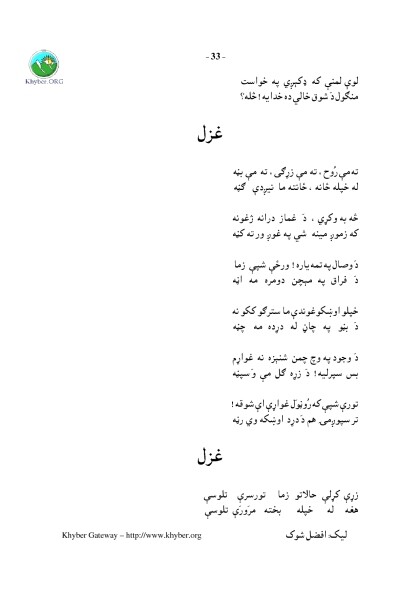 - 33 -
Khyber.ORG
لوې لمنې که ډکېږي په خواست
منګول دَ شوق خالي ده خدایه! څله؟
غزل
ته مې رُوح، ته مې زړګی، ته مې بڼه
له خپله ځانه، ځانته ما تېردې ګڼه
څه به وکړي، دَ غماز درانه ژغونه
که زموږ مینه شي په غوږ ورته کڼه
دَ وصال په تمه یاره! ورځې شپې زما
دَ فراق په مېچن دومره مه اڼه
خپلو اوښکو غوندې ما سترګو ککو نه
دَ بڼو په چاڼ له درده مه چڼه
دَ وجود په وچ چمن شنېزه نه غواړم
بس سپرلیه! دَ زړه ګل مې وَسپڼه
تورې شپې که رُوڼول غواړې اې شوقه!
تر سپوږمۍ هم دَ درد اوښکه وي رڼه
غزل
زړې کړلې حالاتو زما تورسرې تلوسې
هغه له خپله بخته مرَورَې تلوسې
Khyber Gateway – http://www.khyber.org
لیک: افضل شوک